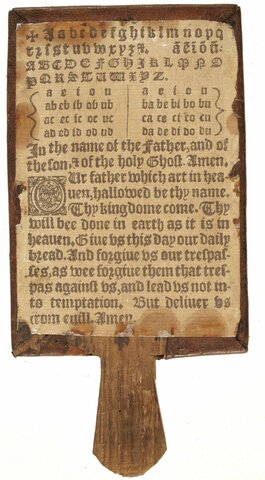 ✠ A a b c d e f g h i k l m n o p q
r z s ſ t u v w x y z ꝛ. ã ẽ ĩ õ ũ:
A B C D E F G H I K L M N O
P Q R S T U W X Y Z.
a e i o u a e i o u
ab eb ib ob ub ba be bi bo bu
ac ec ic oc uc ca ce ci co cu
ad ed id od ud da de di do du
In the name of the Father, and of
the ſon, & of the holy Ghoſt. Amen.
OUr father which art in hea-
uen, hallowed be thy name.
Thy kingdome come. Thy
will bee done in earth as it is in
heauen. Giue vs this day our daily
bread. And forgiue vs our treſpaſ-
ſes, as wee forgiue them that treſ-
pas againſt vs, and lead vs not in-
to temptation. But deliuer vs
from euill. Amen.